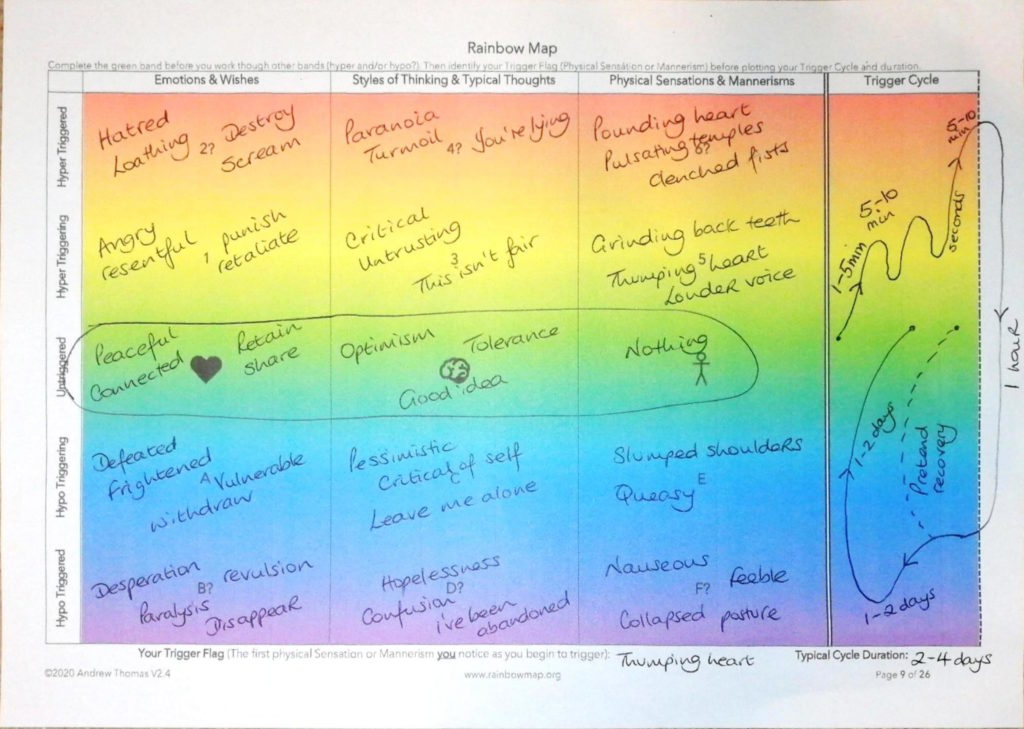 Rainbow Map
Complete the green band before you work though other bands (hyper and/or hypo?). Then identify your Trigger Flag (Physical Sensation or Mannerism) before plotting your Trigger Cycle and duration.
Emotions & Wishes
Styles of Thinking & Typical Thoughts
Physical Sensations & Mannerisms
Trigger Cycle
Hyper Triggered
Hatred
Loathing
2?
Destroy
Scream
Paranoia
Turmoil
4?
You're lying
Pounding heart
Pulsating temples
6?
clenched fists
Hyper Triggering
Angry
resentful
1
punish
retaliate
Critical
Untrusting
3
This isn't fair
Grinding back teeth
Thumping heart
5
Louder voice
Untriggered
Peaceful
Connected
Retain
share
Optimism
Tolerance
Good idea
Nothing
Hypo Triggering
Defeated
frightened
A
Vulnerable
withdraw
Pessimistic
Critical of self
C
Leave me alone
Slumped shoulders
E
Queasy
Hypo Triggered
Desperation
B?
revulsion
Paralysis
Disappear
Hopelessness
D?
Confusion
i've been
abandoned
Nauseous
F?
feeble
Collapsed posture
1-5 min
5-10
min
seconds
5-10
min
1 hour
1-2 days
Pretend
recovery
1-2 days
Your Trigger Flag (The first physical Sensation or Mannerism you notice as you begin to trigger): Thumping heart
Typical Cycle Duration: 2-4 days
©2020 Andrew Thomas V2.4
www.rainbowmap.org
Page 9 of 26